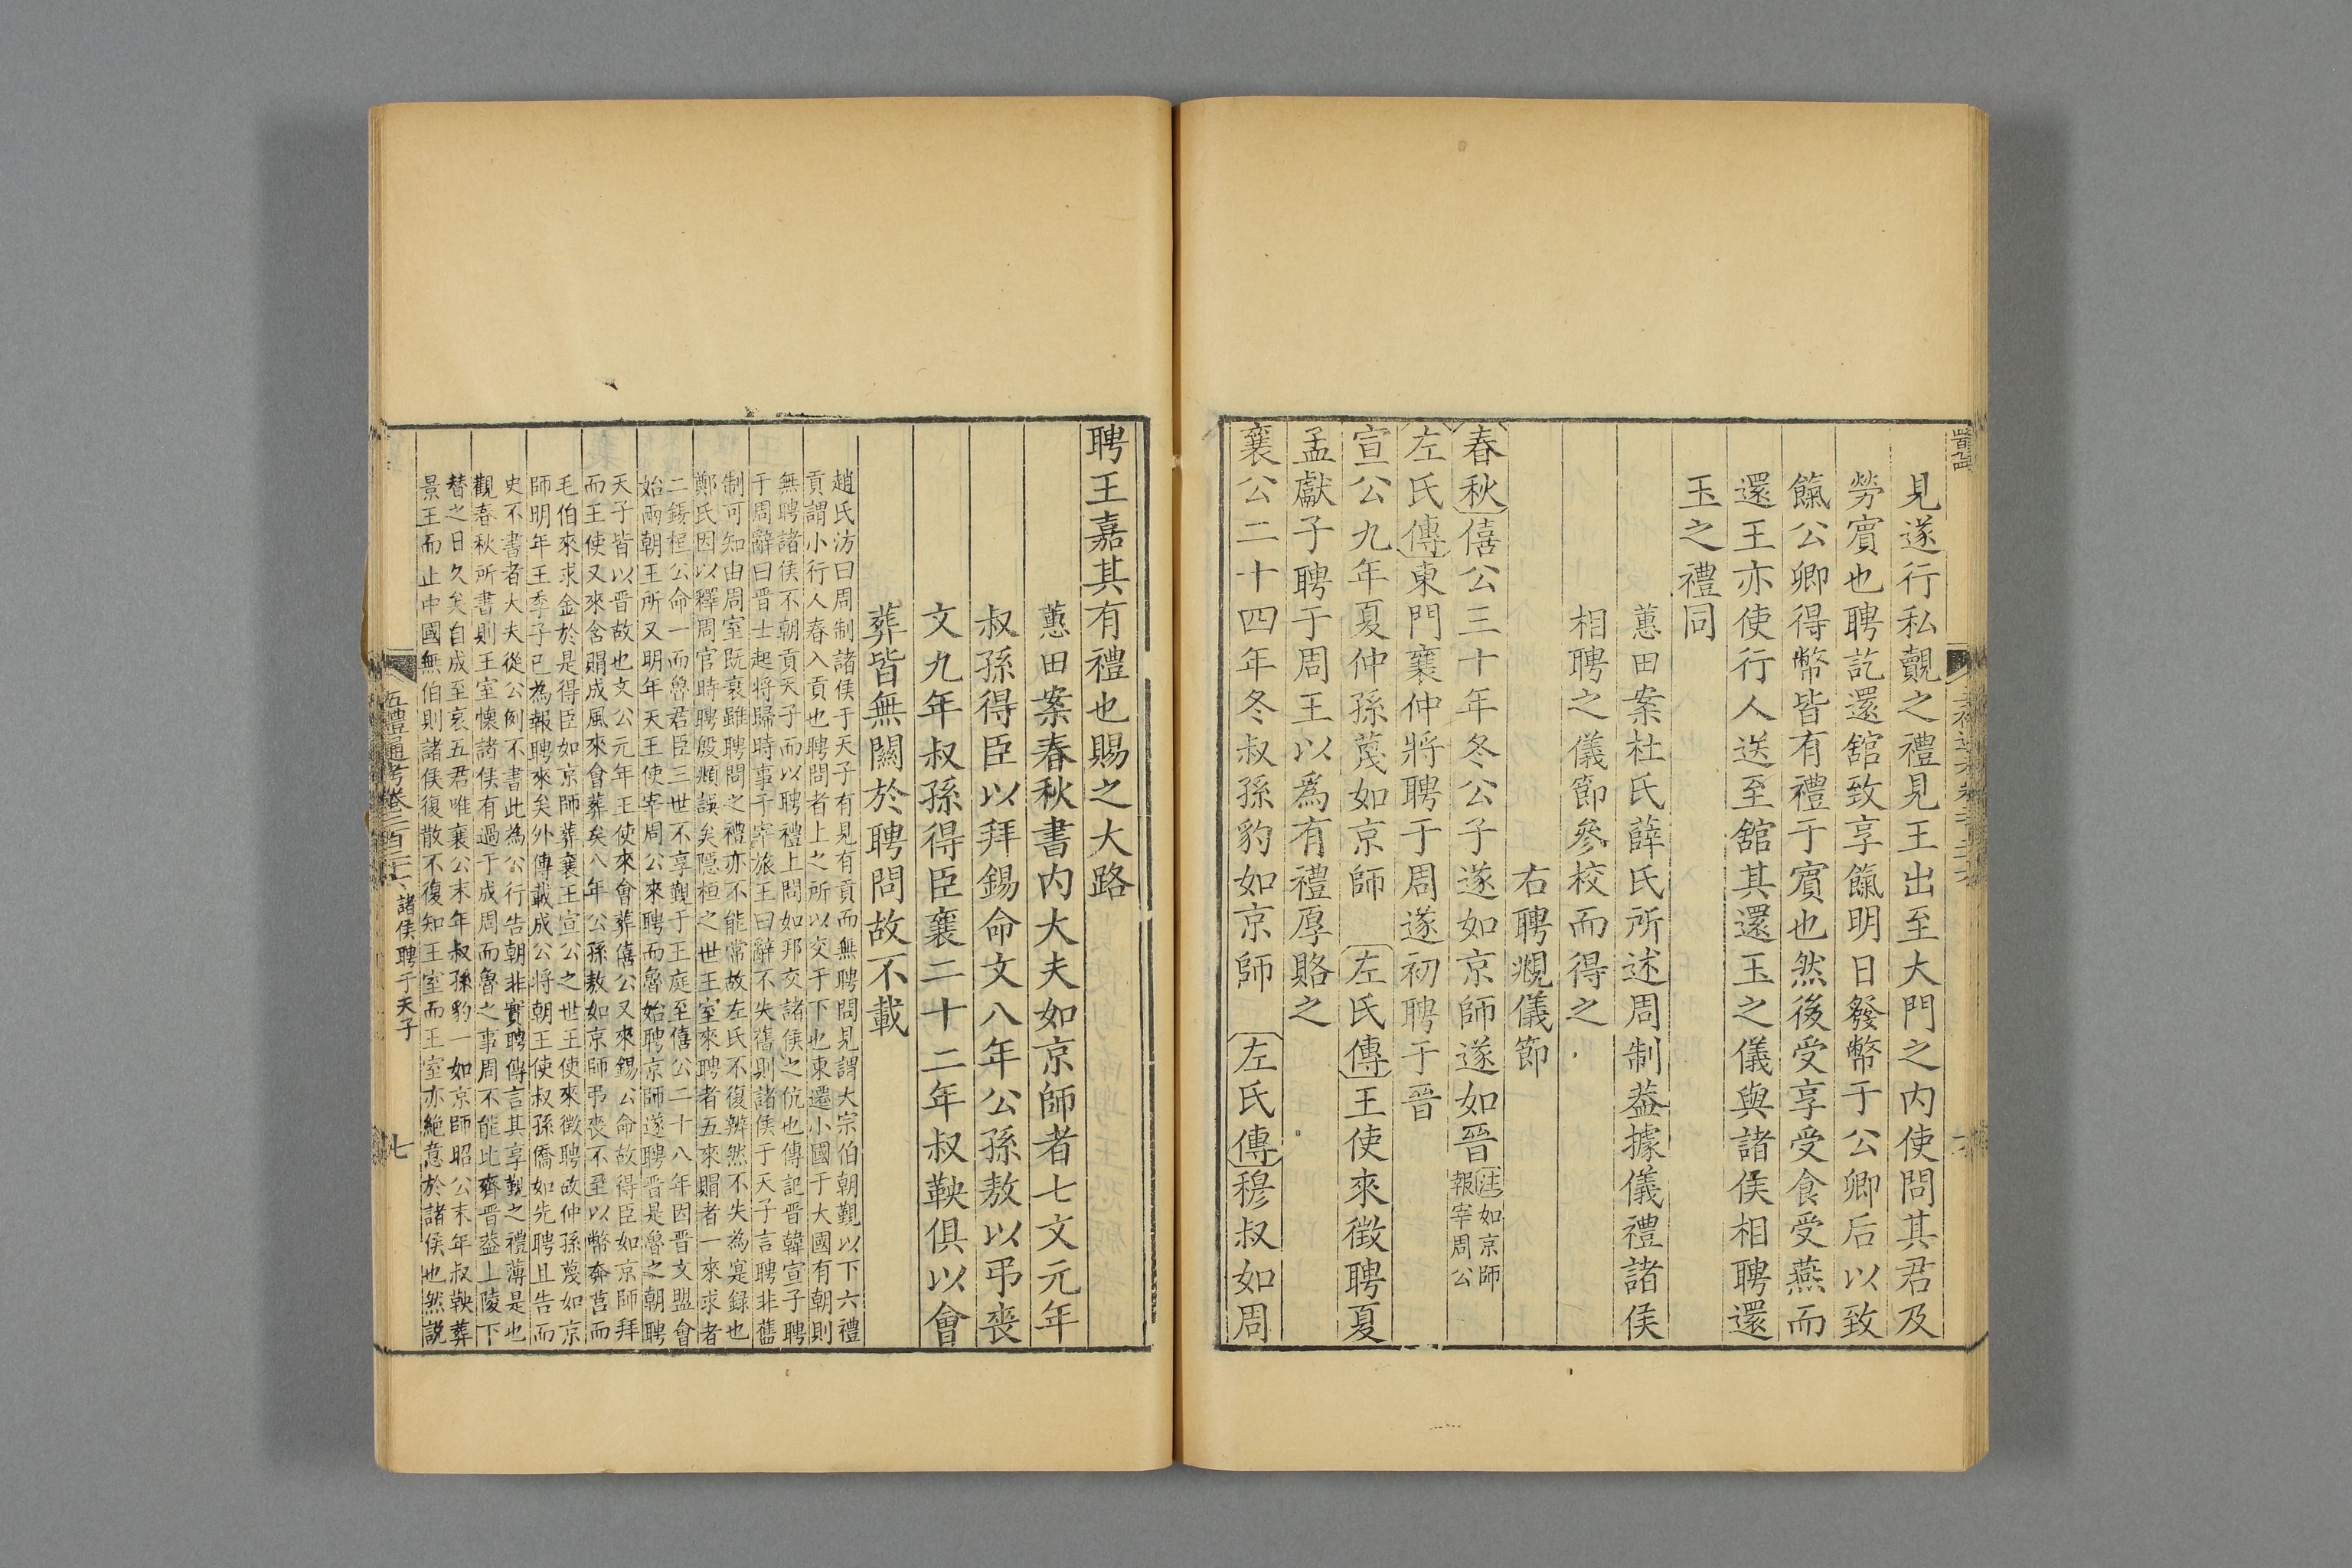 見遂行私覿之禮見王出至大門之內使問其君及
勞賔也聘訖還舘致享餼明日發幣于公卿后以致
餼公卿得幣皆有禮于賔也然後受享受食受燕而
還王亦使行人送至舘其還玉之儀與諸侯相聘還
玉之禮同
蕙田案杜氏薛氏所述周制葢據儀禮諸侯
相聘之儀節參校而得之
右聘覜儀節
春秋僖公三十年冬公子遂如京師遂如晉注如京師
報宰周公
左氏傳東門襄仲將聘于周遂初聘于晉
宣公九年夏仲孫蔑如京師 左氏傳王使來徵聘夏
孟獻子聘于周王以爲有禮厚賂之
襄公二十四年冬叔孫豹如京師 左氏傳穆叔如周
聘王嘉其有禮也賜之大路
蕙田案春秋書內大夫如京師者七文元年
叔孫得臣以拜錫命文八年公孫敖以弔喪
文九年叔孫得臣襄二十二年叔鞅俱以會
葬皆無關於聘問故不載
趙氏汸曰周制諸侯于天子有見有貢而無聘問見謂大宗伯朝覲以下六禮
貢謂小行人春入貢也聘問者上之所以交于下也東遷小國于大國有朝則
無聘諸侯不朝貢天子而以聘禮上問如邦交諸侯之伉也傳記晉韓宣子聘
于周辭曰晉士起將歸時事于宰旅王曰辭不失舊則諸侯于天子言聘非舊
制可知由周室既衰雖聘問之禮亦不能常故左氏不復辨然不失為寔録也
鄭氏因以釋周官時聘殷頫誤矣隱桓之世王室來聘者五來賵者一來求者
二錫桓公命一而魯君臣三世不享覲于王庭至僖公二十八年因晉文盟會
始兩朝王所又明年天王使宰周公來聘而魯始聘京師遂聘晉是魯之朝聘
天子皆以晉故也文公元年王使來會葬僖公又來錫公命故得臣如京師拜
而王使又來含賵成風來會葬矣八年公孫敖如京師弔喪不至以幣奔莒而
毛伯來求金於是得臣如京師葬襄王宣公之世王使來徵聘故仲孫蔑如京
師明年王季子已為報聘來矣外傳載成公將朝王使叔孫僑如先聘且告而
史不書者大夫從公例不書此為公行告朝非實聘傳言其享覲之禮薄是也
觀春秋所書則王室懷諸侯有過于成周而魯之事周不能比齊晉葢上陵下
替之日久矣自成至哀五君唯襄公末年叔孫豹一如京師昭公末年叔鞅葬
景王而止中國無伯則諸侯復散不復知王室而王室亦絶意於諸侯也然説
五禮通考卷二百三十一 諸侯聘于天子
七